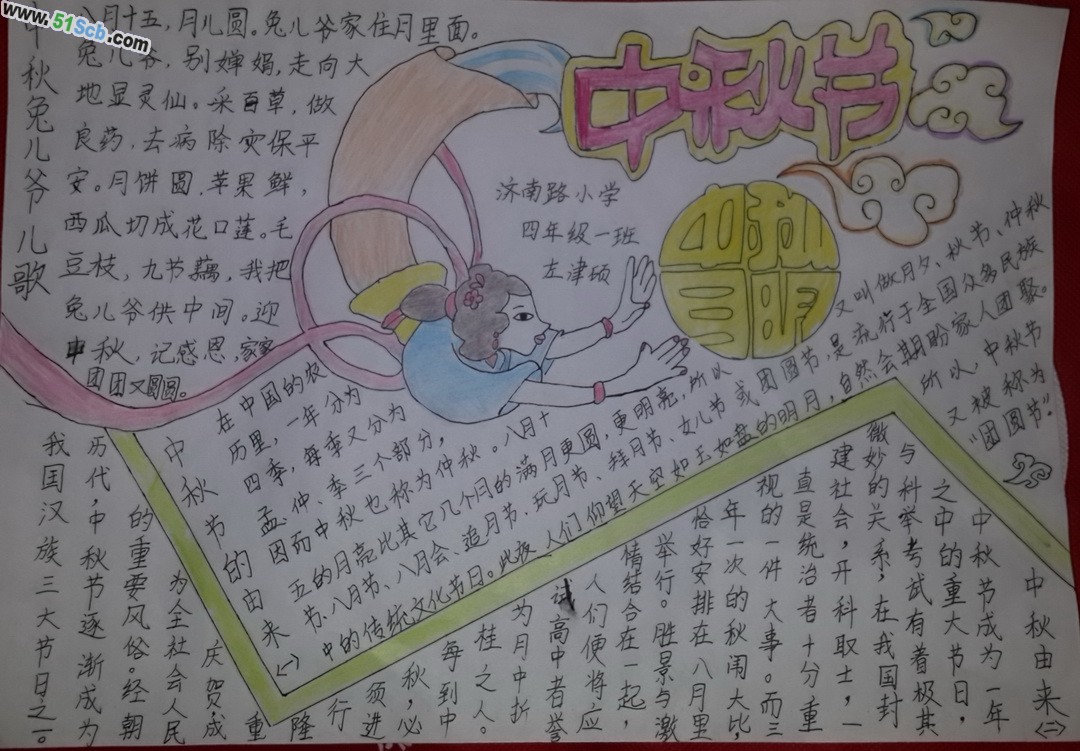 www.51Scb.com
中秋节
中秋
三明
济南路小学
四年级一班
左津硕
中秋兔儿爷儿歌
八月十五，月儿圆。兔儿爷家住月里面。
兔儿爷，别婵娟，走向大
地显灵仙。采百草，做
良药，去病除灾保平
安。月饼圆，苹果鲜，
西瓜切成花口莲。毛
豆枝，九节藕，我把
兔儿爷供中间。迎
中秋，记感恩，家家
团团又圆圆。
中秋节的由来(一)
在中国的农
历里，一年分为
四季，每季又分为
孟、仲、季三个部分，
因而中秋也称为仲秋。八月十
五的月亮比其它几个月的满月更圆，更明亮，所以又叫做月夕、秋节、仲秋
节、八月节、八月会、追月节、玩月节、拜月节、女儿节或团圆节，是流行于全国众多民族
中的传统文化节日。此夜，人们仰望天空如玉如盘的明月，自然会期盼家人团聚。
所以，中秋节
又被称为
“团圆节”。
中秋由来(二)
中秋节成为一年
之中的重大节日，
与科举考试有着极其
微妙的关系，在我国封
建社会，开科取士，一
直是统治者十分重
视的一件大事。而三
年一次的秋闱大比，
恰好安排在八月里
举行。胜景与激
情结合在一起，
人们便将应
试高中者誉
为月中折
桂之人。
每到中
秋，必
须进
行
隆
重
庆贺成
为全社会人民
的重要风俗。经朝
历代，中秋节逐渐成为
我国汉族三大节日之一。